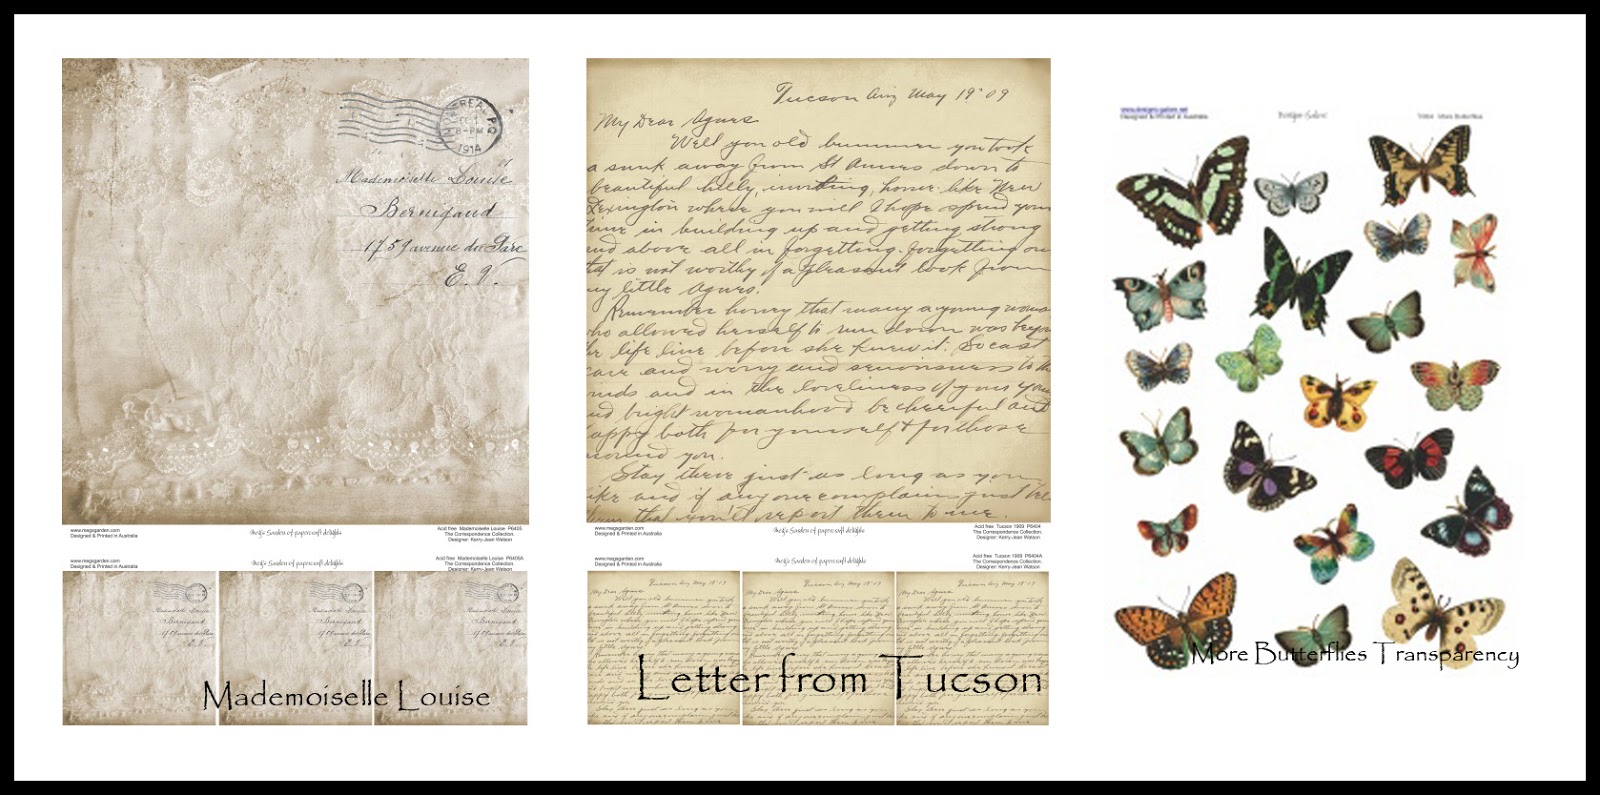 MONTREAL P.Q.
8-PM
1914
Mademoiselle Louise
Bernigaud
1759 avenue du Parc
E. V.
www.megsgarden.com
Designed & Printed in Australia
Meg's Garden of papercraft delights
Acid free Mademoiselle Louise P6405
The Correspondence Collection.
Designer: Kerry-Jean Watson
www.megsgarden.com
Designed & Printed in Australia
Meg's Garden of papercraft delights
Acid free Mademoiselle Louise P6405A
The Correspondence Collection.
Designer: Kerry-Jean Watson
Mademoiselle Louise
Tucson Ariz May 19" 09
My Dear Agnes
Well you old bummer you took
a sunk away from St Annes down to
beautiful hilly, inviting, home like New
Lexington where you will I hope spend your
time in building up and getting strong
and above all in forgetting, forgetting on
that is not worthy of a pleasant look from
my little Agnes.
Remember honey that many a young woma
who allowed herself to run down was beyon
the life line before she knew it. So cast
care and worry and seriousness to the
winds and in the loveliness of your youn
and bright womanhood be cheerful and
happy both for yourself & for those
around you.
Stay there just as long as you
like and if any one complain just tel
them that don't report them to me.
www.megsgarden.com
Designed & Printed in Australia
Meg's Garden of papercraft delights
Acid free Tucson 1909 P6404
The Correspondence Collection.
Designer: Kerry-Jean Watson
www.megsgarden.com
Designed & Printed in Australia
Meg's Garden of papercraft delights
Acid free Tucson 1909 P6404A
The Correspondence Collection.
Designer: Kerry-Jean Watson
Letter from Tucson
www.designs-galore.net
Designed & Printed in Australia
Designs Galore
More Butterflies
More Butterflies Transparency